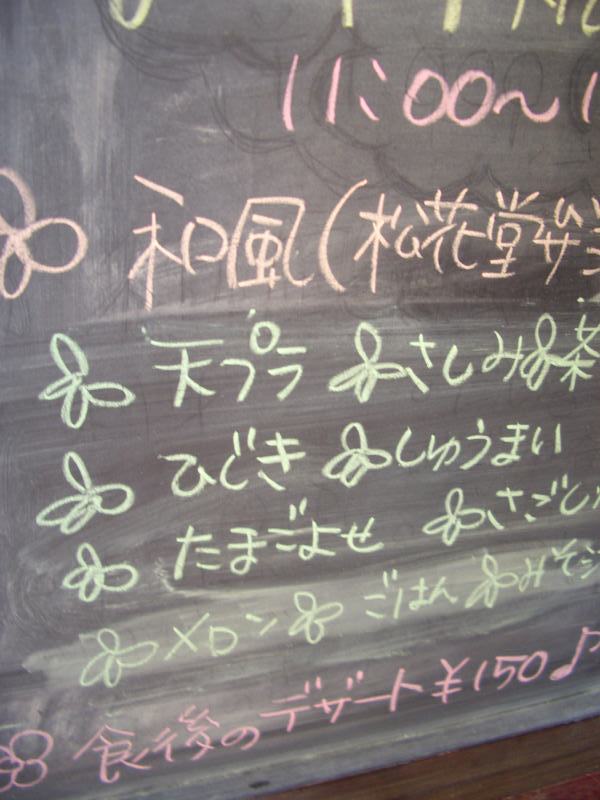 11:00〜1
和風(松花堂
天プラ さしみ 茶
ひじき しゅうまい
たまごよせ さごし
メロン ごはん みそ
食後のデザート ¥150♪